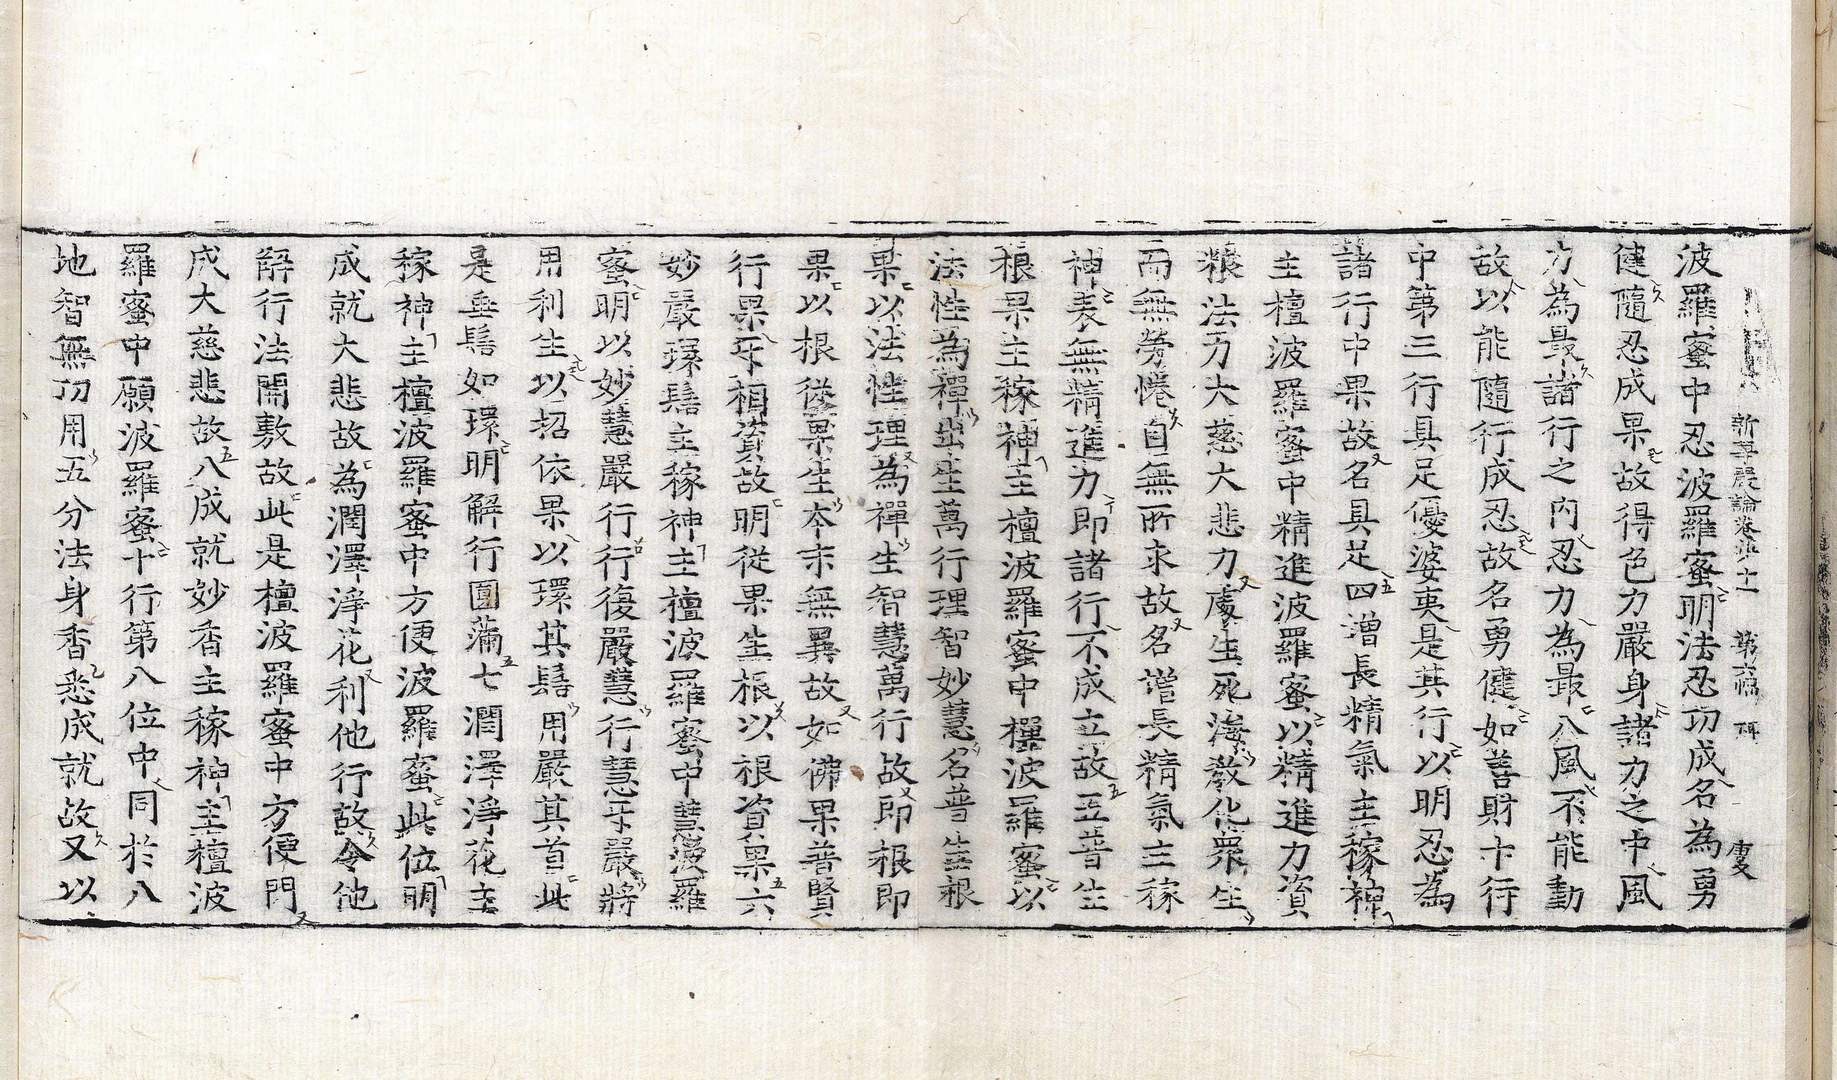 新華嚴論卷第十一 第六幅 㢱 
波羅蜜中忍波羅蜜明法忍功成名為勇
健隨忍成果故得色力嚴身諸力之中風
力為最諸行之內忍力為最八風不能動
故以能隨行成忍故名勇健如善財十行
中第三行具足優婆夷是其行以明忍為
諸行中果故名具足四增長精氣主稼神
主檀波羅蜜中精進波羅蜜以精進力資
糧法力大慈大悲力處生死海教化眾生
而無勞惓自無所求故名增長精氣主稼
神表無精進力即諸行不成立故五普生
根果主稼神主檀波羅蜜中禪波羅蜜以
法性為禪出生萬行理智妙慧名普生根
果以法性理為禪生智慧萬行故即根即
果以根從果生本末無異故如佛果普賢
行果互相資故明從果生根以根資果六
妙嚴環髻主稼神主檀波羅蜜中慧波羅
蜜明以妙慧嚴行行復嚴慧行慧互嚴將
用利生以招依果以環其髻用嚴其首此
是垂髻如環明解行圓滿七潤澤淨花主
稼神主檀波羅蜜中方便波羅蜜此位明
成就大悲故為潤澤淨花利他行故令他
解行法開敷故此是檀波羅蜜中方便門
成大慈悲故八成就妙香主稼神主檀波
羅蜜中願波羅蜜十行第八位中同於八
地智無功用五分法身香悉成就故又以